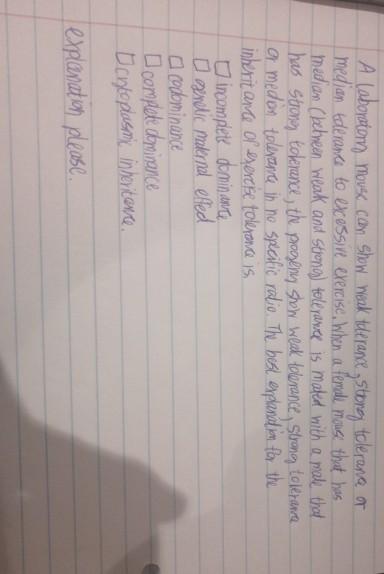 A laboratory mouse can show weak tolerance, strong tolerance or
median tolerance to excessive exercise. When a female mouse that has
median (between weak and strong) tolerance is mated with a male that
has strong tolerance, the progeny show weak tolerance, strong tolerance
or median tolerance in no specific ratio. The best explanation for the
inheritance of exercise tolerance is
☐ incomplete dominance
☐ genetic maternal effect
☐ codominance
☐ complete dominance
☐ cytoplasmic inheritance.
explanation please.